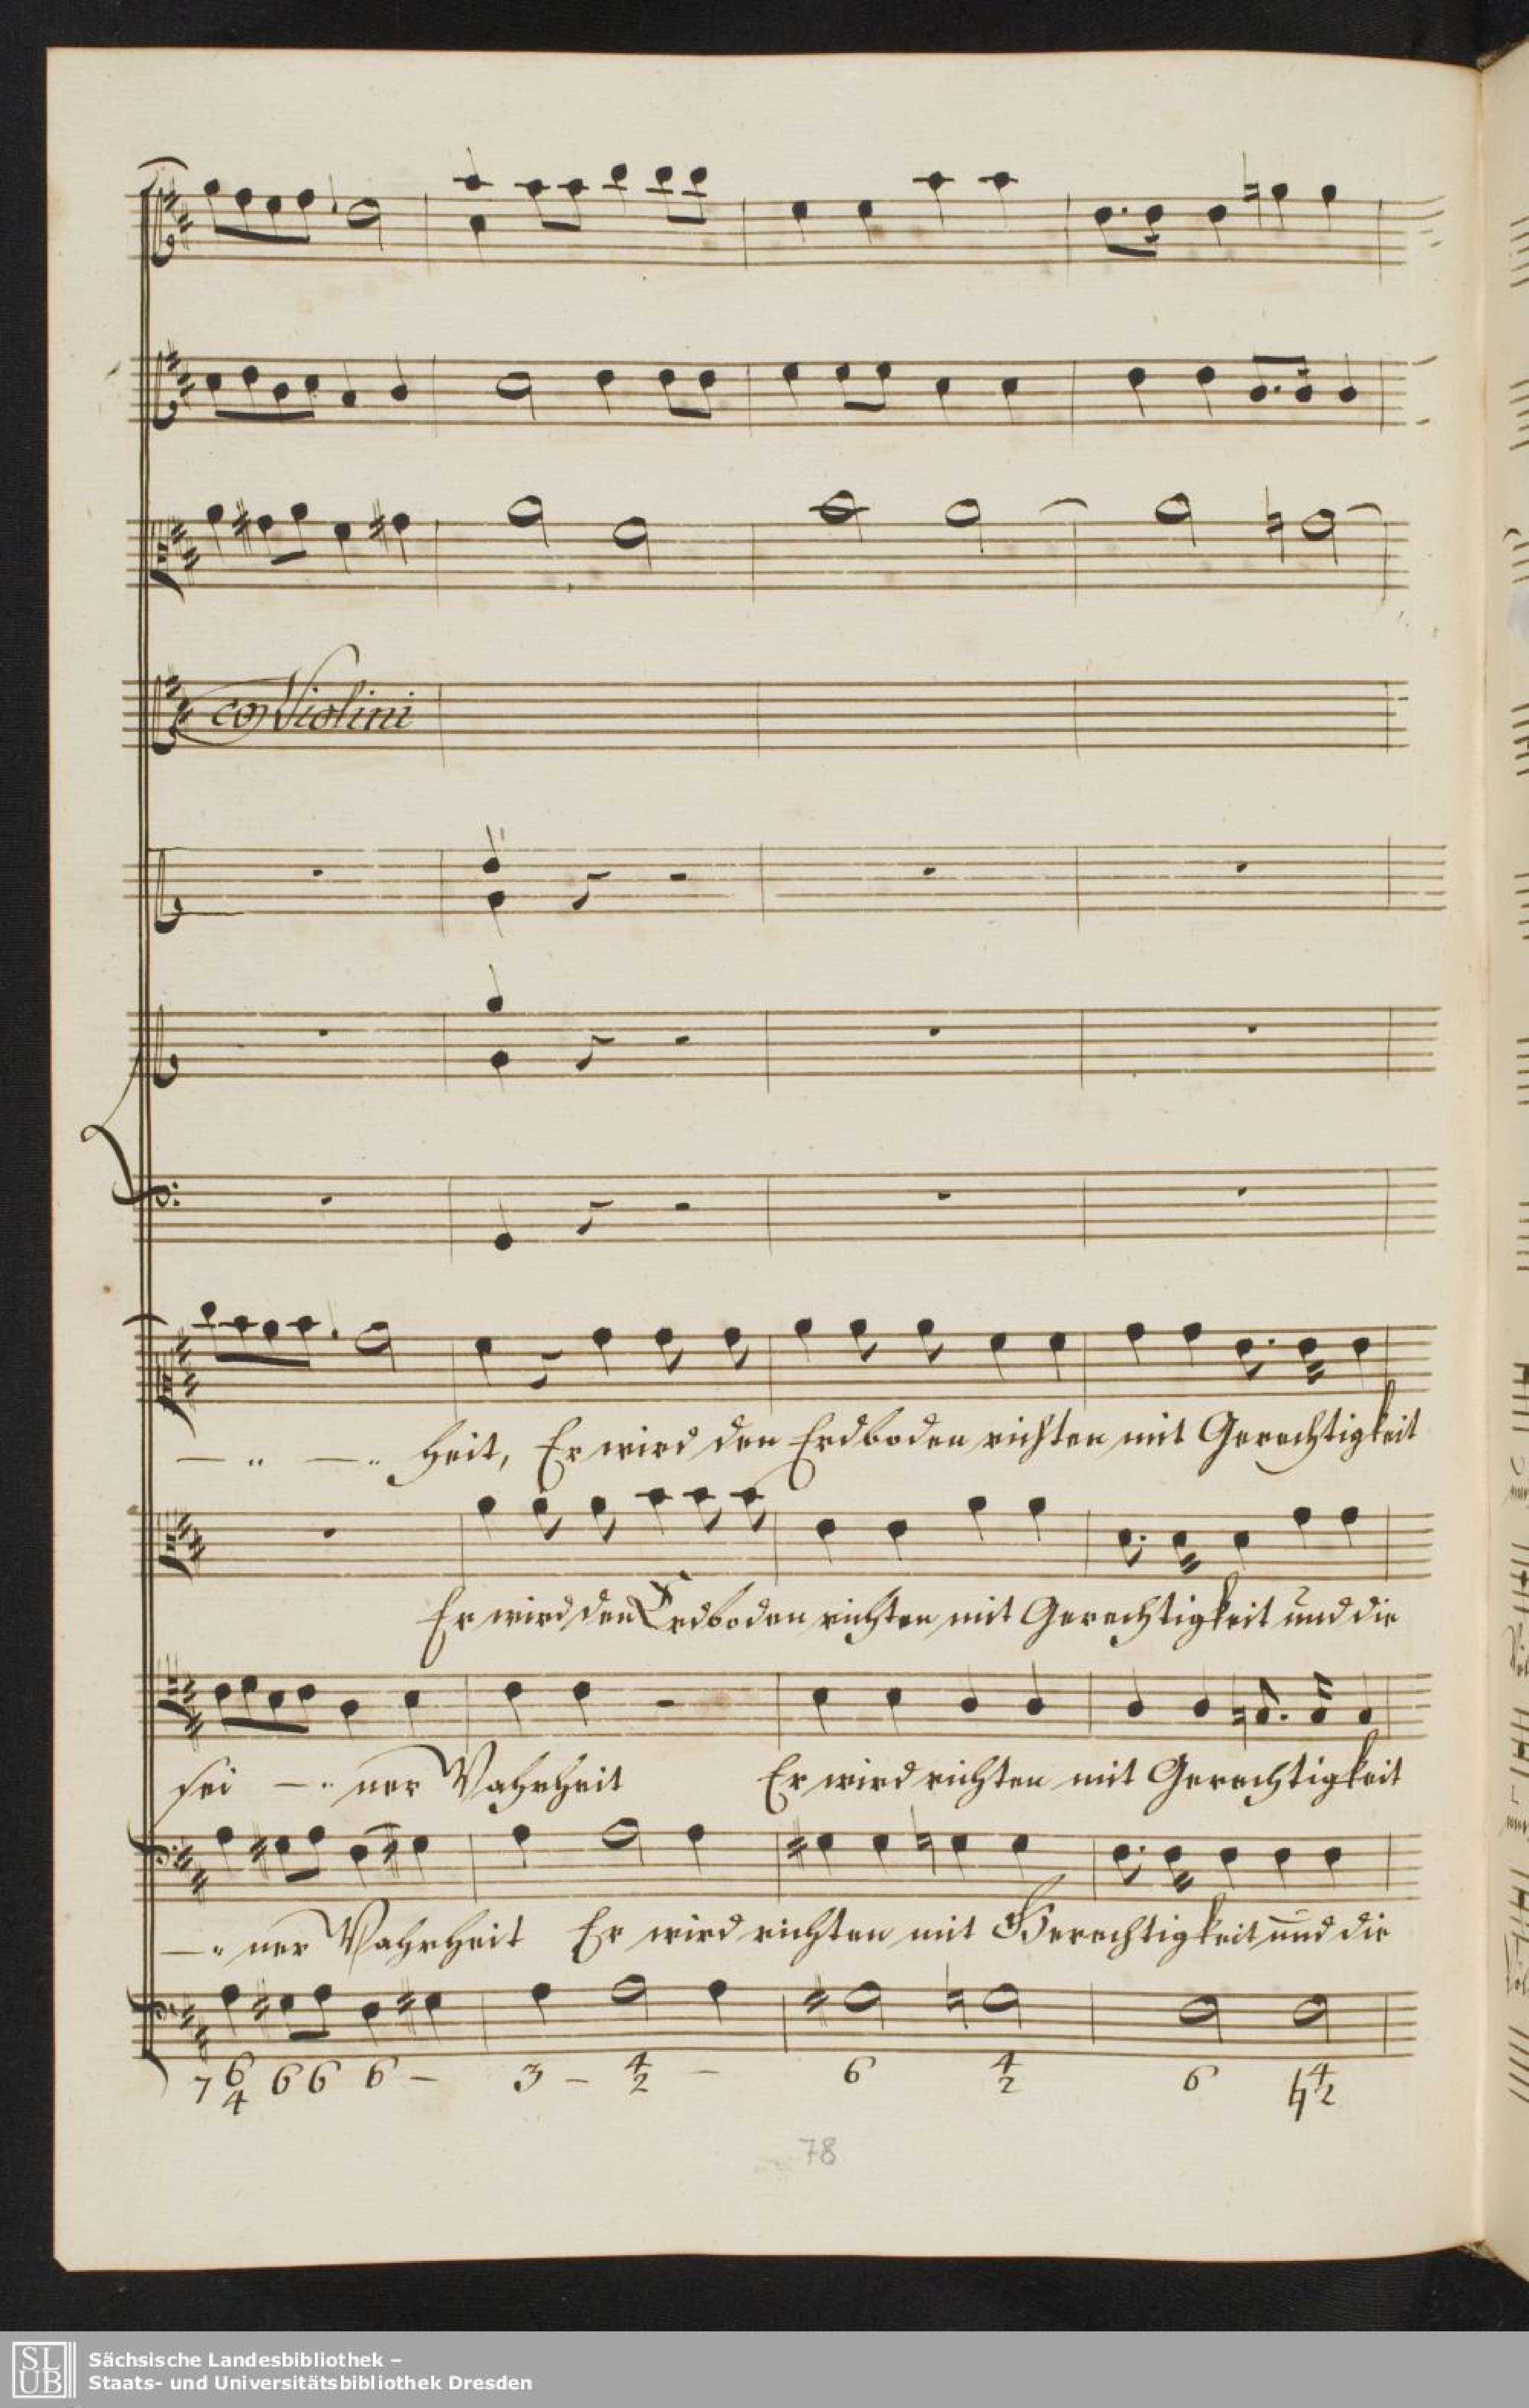 con Violini
heit, Er wird den Erdboden richten mit Gerechtigkeit
Er wird den Erdboden richten mit Gerechtigkeit und die
sei - ner Wahrheit Er wird richten mit Gerechtigkeit
- ner Wahrheit Er wird richten mit Gerechtigkeit und die
7 6 4 6 6 6 – 3 – 4 2 – 6 4 2 6 ♮ 4 2
78
SLUB
Sächsische Landesbibliothek –
Staats- und Universitätsbibliothek Dresden